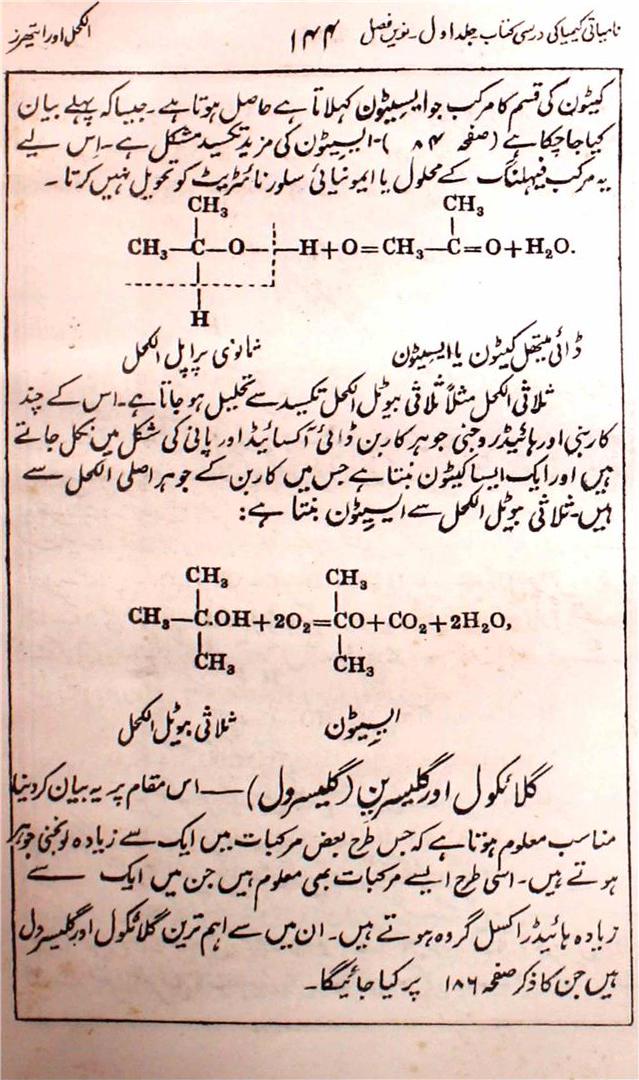 نامیاتی کیمیا کی درسی کتاب جلد اول۔ نویں فصل ۱۴۴ الکحل اور ایتھرز
کیٹون کی قسم کا مرکب جو ایسیٹون کہلاتا ہے حاصل ہوتا ہے۔ جیسا کہ پہلے بیان
کیا جا چکا ہے (صفحہ ۸۴ )۔ ایسیٹون کی مزید تکسید مشکل ہے۔ اِس لیے
یہ مرکب فیہلنگ کے محلول یا ایمونیائی سلور نائٹریٹ کو تحویل نہیں کرتا۔
CH₃ CH₃
CH₃—C—O—H+O=CH₃—C=O+H₂O.
H
ڈائی میتھل کیٹون یا ایسیٹون ثانوی پراپل الکحل
ثلاثی الکحل مثلاً ثلاثی بیوٹل الکحل تکسید سے تحلیل ہو جاتا ہے۔ اس کے چند
کاربنی اور ہائیڈروجنی جوہر کاربن ڈائی آکسائیڈ اور پانی کی شکل میں نکل جاتے
ہیں اور ایک ایسا کیٹون بنتا ہے جس میں کاربن کے جوہر اصلی الکحل سے
ہیں۔ ثلاثی بیوٹل الکحل سے ایسیٹون بنتا ہے:
CH₃ CH₃
CH₃—C.OH+2O₂=CO+CO₂+2H₂O,
CH₃ CH₃
ایسیٹون ثلاثی بیوٹل الکحل
گلائکول اور گلیسرین (گلیسرول)— اس مقام پر یہ بیان کر دینا
مناسب معلوم ہوتا ہے کہ جس طرح بعض مرکبات میں ایک سے زیادہ لونجنی جوہر
ہوتے ہیں۔ اسی طرح ایسے مرکبات بھی معلوم ہیں جن میں ایک سے
زیادہ ہائیڈراکسل گروہ ہوتے ہیں۔ ان میں سے اہم ترین گلائکول اور گلیسرول
ہیں جن کا ذکر صفحہ ۱۸۶ پر کیا جائیگا۔